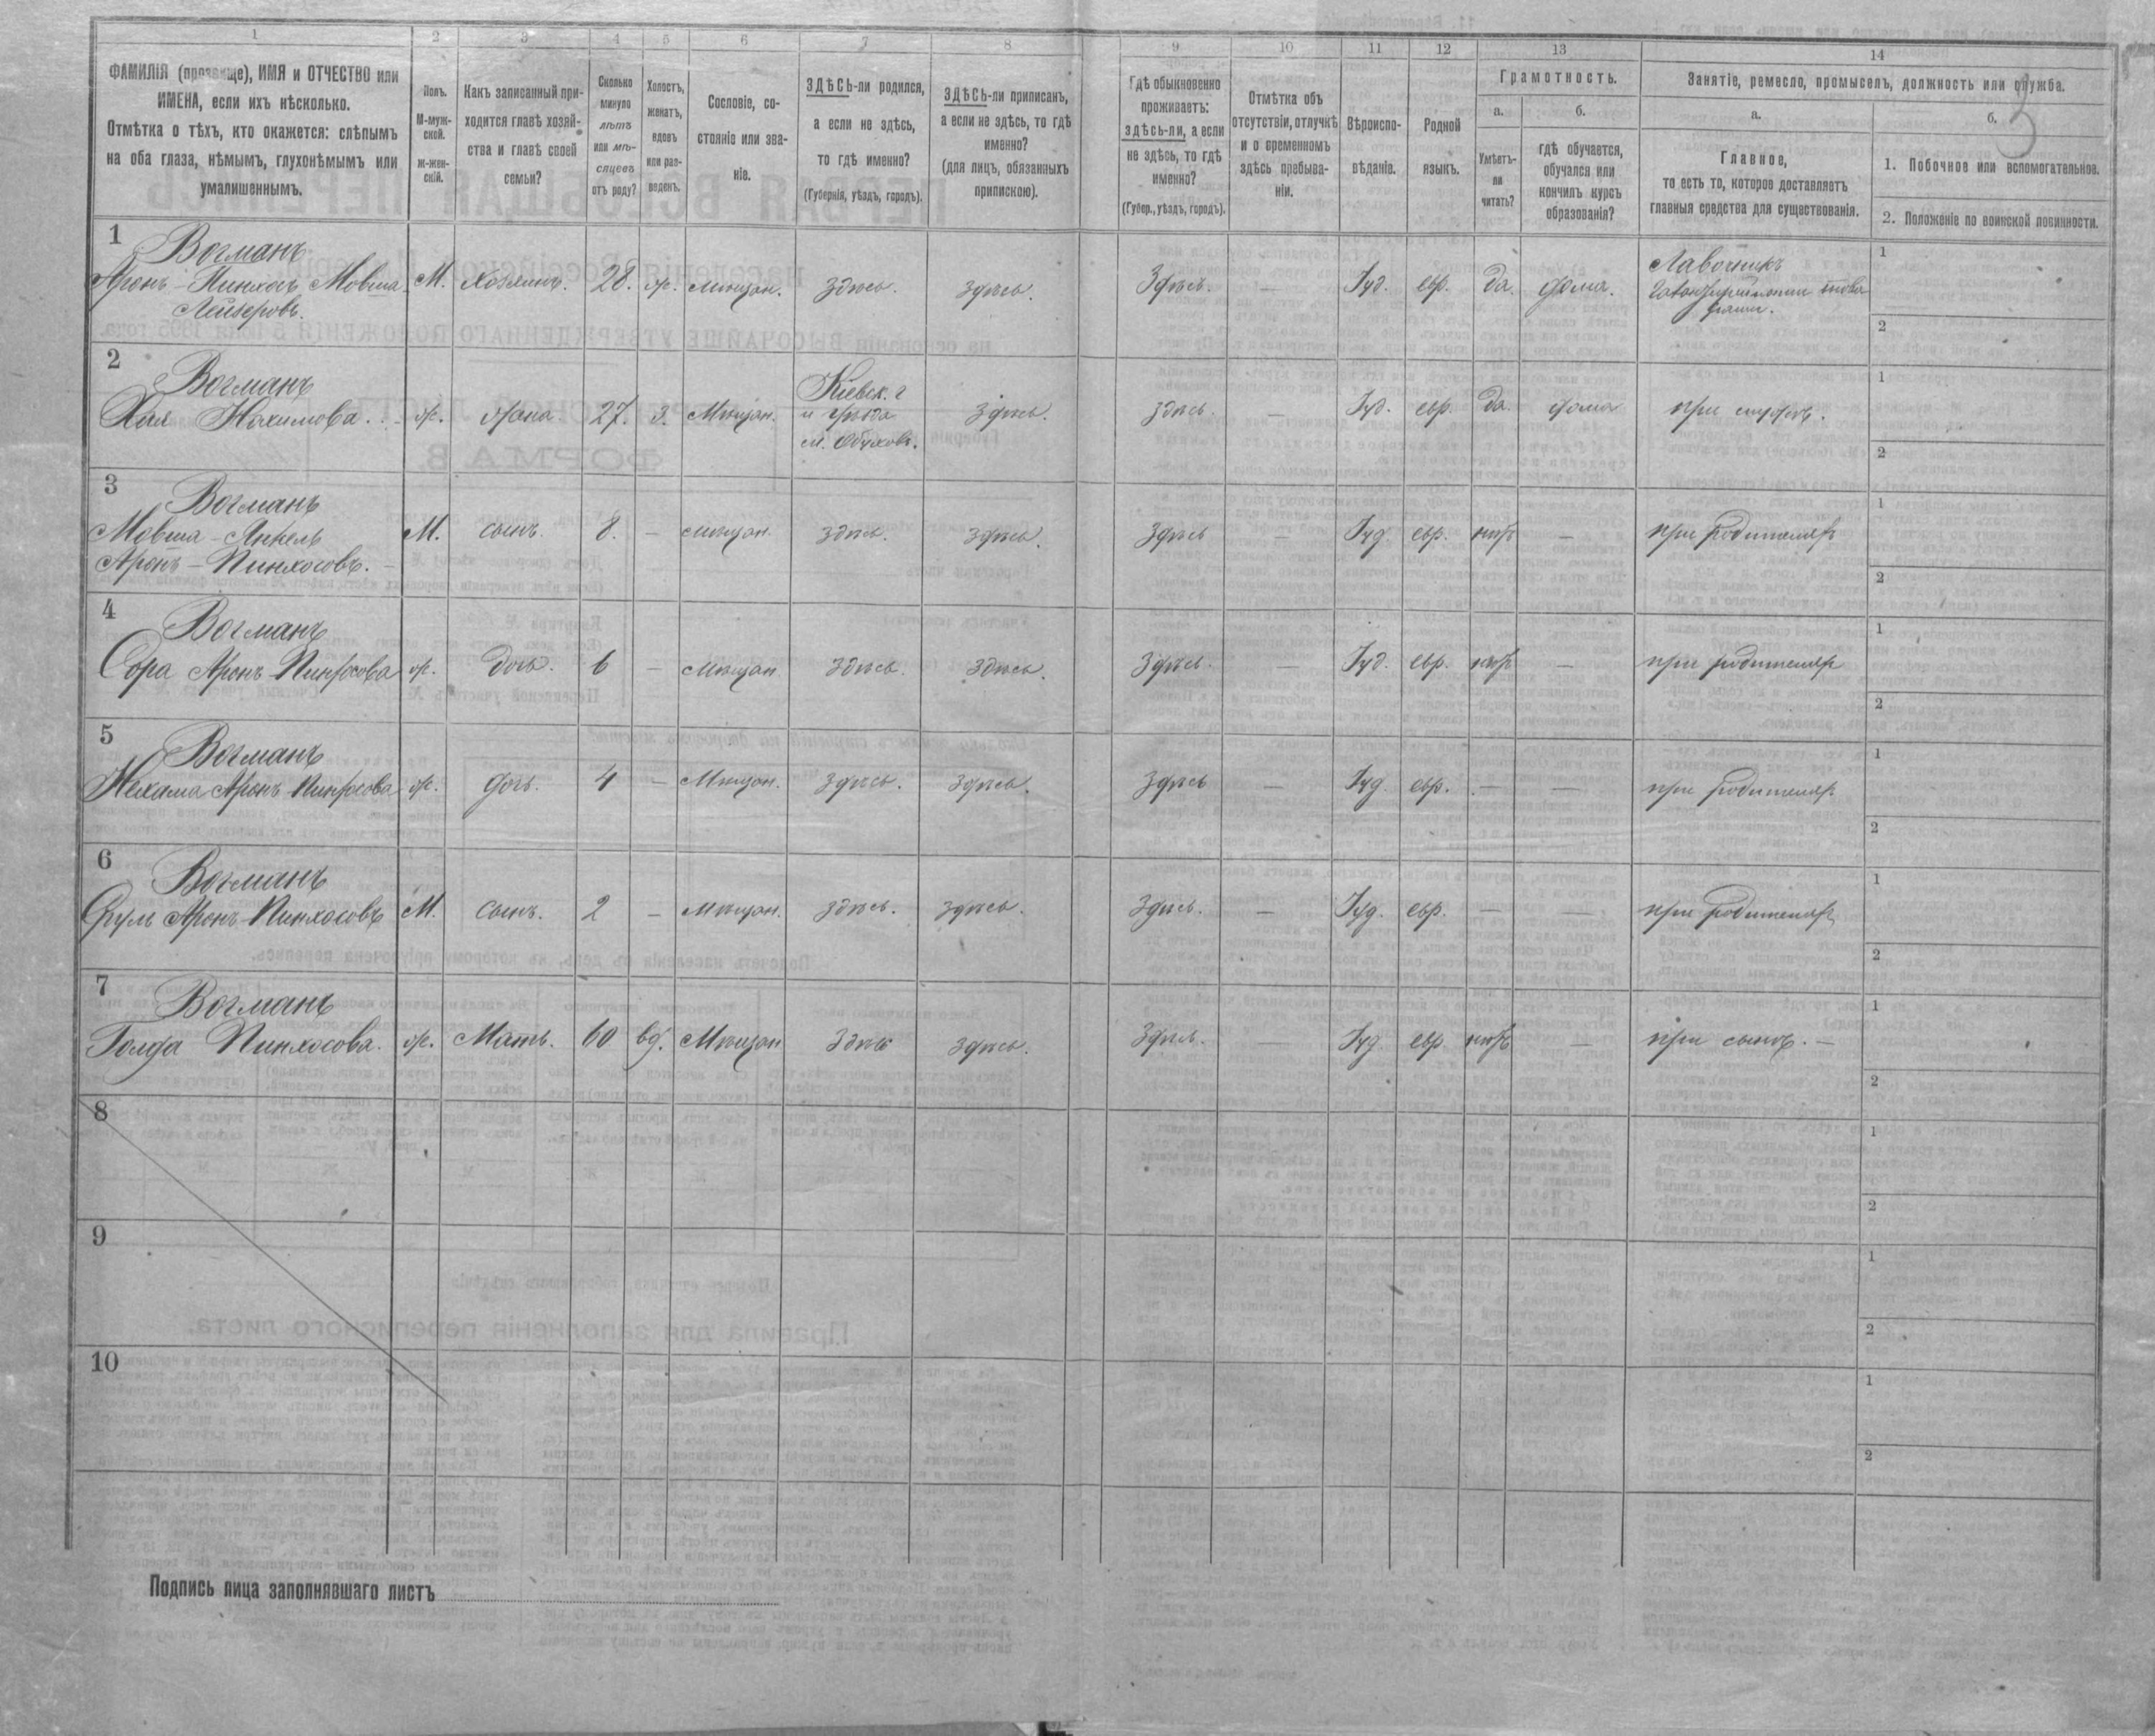 1 2 3 4 5 6 7 8 9 10 11 12 13 14
ФАМИЛІЯ (прозвище), ИМЯ и ОТЧЕСТВО или
ИМЕНА, если ихъ нѣсколько.
Отмѣтка о тѣхъ, кто окажется: слѣпымъ
на оба глаза, нѣмымъ, глухонѣмымъ или
умалишеннымъ.
Полъ.
М-муж-
ской.
Ж-жен-
скій.
Какъ записанный при-
ходится главѣ хозяй-
ства и главѣ своей
семьи?
Сколько
минуло
лѣтъ
или мѣ-
сяцевъ
отъ роду?
Холостъ,
женатъ,
вдовъ
или раз-
веденъ.
Сословіе, со-
стояніе или зва-
ніе.
ЗДѢСЬ-ли родился,
а если не здѣсь,
то гдѣ именно?
(Губернія, уѣздъ, городъ).
ЗДѢСЬ-ли приписанъ,
а если не здѣсь, то гдѣ
именно?
(для лицъ, обязанныхъ
припискою).
Гдѣ обыкновенно
проживаетъ:
здѣсь-ли, а если
не здѣсь, то гдѣ
именно?
(Губер., уѣздъ, городъ).
Отмѣтка объ
отсутствіи, отлучкѣ
и о временномъ
здѣсь пребыва-
ніи.
Вѣроиспо-
вѣданіе.
Родной
языкъ.
Грамотность.
а.
Умѣетъ-
ли
читать?
б.
гдѣ обучается,
обучался или
кончилъ курсъ
образованія?
Занятіе, ремесло, промыселъ, должность или служба.
а.
Главное,
то есть то, которое доставляетъ
главныя средства для существованія.
б.
3
1. Побочное или вспомогательное.
2. Положеніе по воинской повинности.
1
Вогманъ
Аронъ-Пинхосъ Мовша- М. Хозяинъ. 28. ж. мѣщан. здѣсь. здѣсь. Здѣсь. — Іуд. евр. да. дома.
Лейзеровъ.
Лавочникъ
1
2
2
Вогманъ
Хая Нахимова. ж. жена. 27. з. Мѣщан.
Кіевск. г
и уѣзда
м. Обуховъ.
здѣсь. здѣсь. — Іуд. евр. да. дома при мужѣ.
1
2
3
Вогманъ
Мовша-Янкель М. сынъ. 8. — мѣщан. здѣсь. здѣсь. Здѣсь — Іуд. евр. нѣтъ — при родителяхъ
Аронъ-Пинхосовъ.
1
2
4
Вогманъ
Сора Аронъ-Пинхосова ж. дочь. 6 — мѣщан здѣсь. здѣсь. Здѣсь. — Іуд. евр. нѣтъ — при родителяхъ
1
2
5
Вогманъ
Нехама Аронъ-Пинхосова ж. дочь. 4 — Мѣщан. здѣсь. здѣсь. Здѣсь — Іуд. евр. — — при родителяхъ
1
2
6
Вогманъ
Аронъ-Пинхосовъ М. сынъ. 2 — Мѣщан. здѣсь. здѣсь. Здѣсь. — Іуд. евр. — — при родителяхъ
1
2
7
Вогманъ
Голда Пинхосова. ж. Мать. 60 вд. Мѣщан здѣсь здѣсь. Здѣсь. — Іуд. евр. нѣтъ — при сынѣ. —
1
2
8
1
2
9
1
2
10
1
2
Подпись лица заполнявшаго листъ